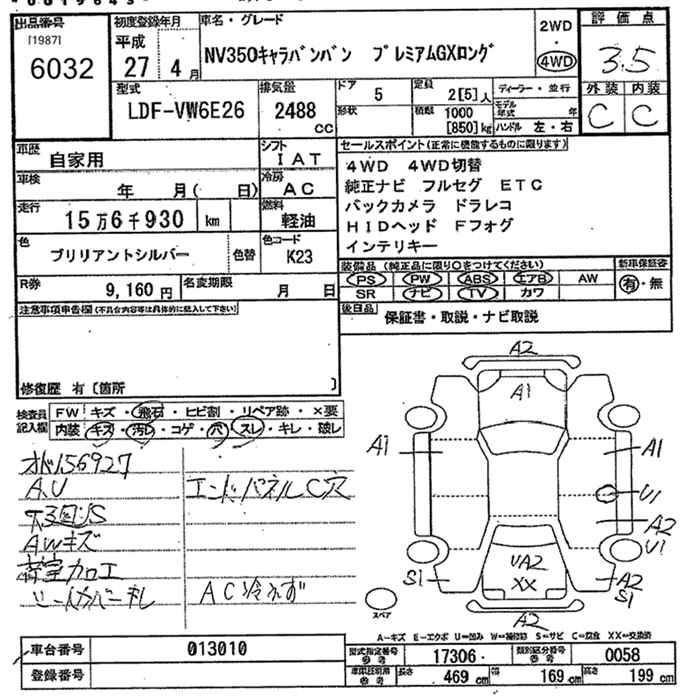 出品番号
[1987]
6032
初度登録年月
平成
27年 4月
車名・グレード
NV350キャラバンバン プレミアムGXロング
2WD
・
4WD
評価点
3.5
外装 内装
C C
型式
LDF-VW6E26
排気量
2488
cc
ドア
5
形状
定員
2[5]人
積類
1000
[850]kg
ディーラー・並行
モデル年式 年
ハンドル 左・右
車歴
自家用
シフト
IAT
車検
年 月( 日)
冷房
AC
走行
15万6千930 km
燃料
軽油
色
ブリリアントシルバー
色替
色コード
K23
R券
9,160円
名変期限
月 日
セールスポイント(正常に機能するものに限ります)
4WD 4WD切替
純正ナビ フルセグ ETC
バックカメラ ドラレコ
HIDヘッド Fフォグ
インテリキー
装備品(純正品に限り○をつけてください)
PS PW ABS エアB AW
SR ナビ TV カワ
新車保証書
有・無
後日品
保証書・取説・ナビ取説
注意事項申告欄(不具合内容等は具体的に記入して下さい)
修復歴 有〔箇所 〕
検査員
記入欄
FW キズ・飛石・ヒビ割・リペア跡・×要
内装 キズ・汚れ・コゲ・穴・スレ・キレ・破レ
156927
AU
エンドパネルC穴
下回りS
AWキズ
荷室加工
AC冷えず
A2
A1
A1
A1
U1
A2
U1
UA2
XX
S1
A2
S1
A2
スペア
A-キズ E-エクボ U=凹み W=補修跡 S=サビ C=腐食 XX=交換済
車台番号
013010
登録番号
型式指定番号
参考
17306
類別区分番号
参考
0058
長さ
469 cm
幅
169 cm
高さ
199 cm